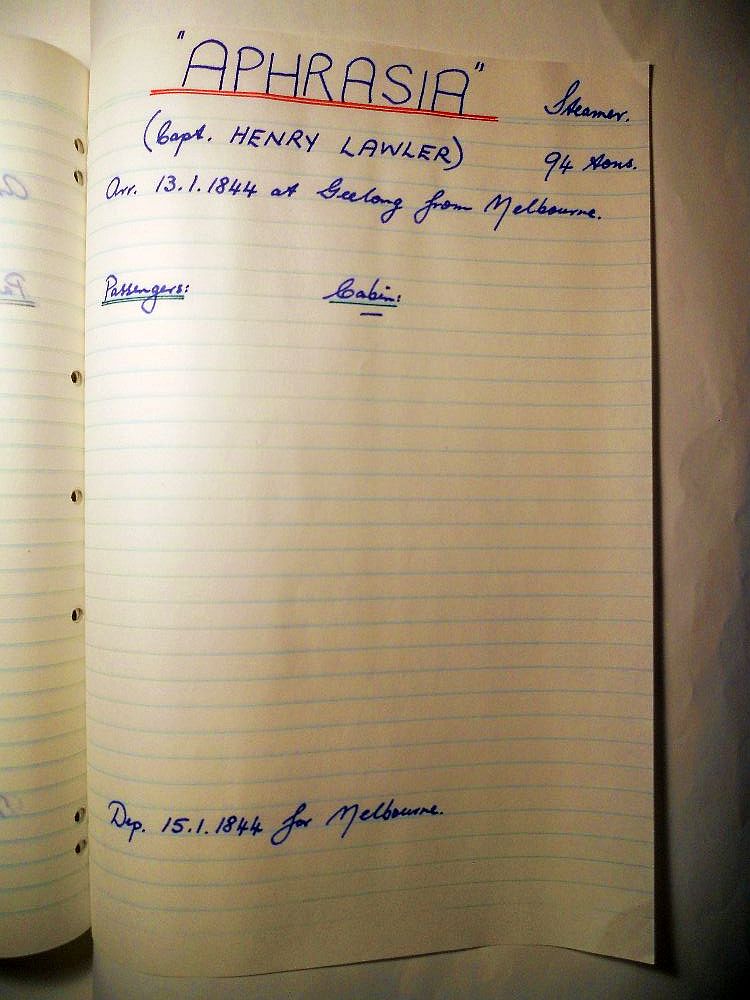 "APHRASIA"
Steamer.
(Capt. HENRY LAWLER)
94 tons.
Arr. 13.1.1844 at Geelong from Melbourne.
Passengers: Cabin:
Dep. 15.1.1844 for Melbourne.